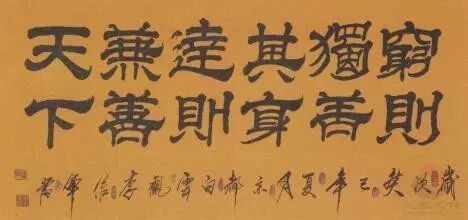 窮則
獨善
其身
達則
兼善
天下
歲次癸巳年夏月京都白雲觀李信軍書